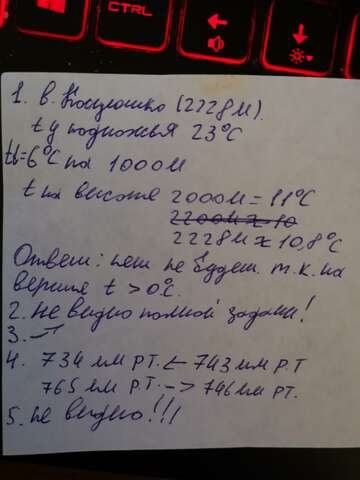 CTRL
1. в. Косцюшко (2228м).
t у подножья 23°С
t↓=6°С на 1000м
t на высоте 2000м = 11°С
2200м ≈ 10
2228м ≈ 10,8°С
Ответ: нет не будет т.к. на
вершине t > 0°С.
2. Не видно полной задачи!
3. —
4. 734 мм рт. ← 743 мм р.т
765 мм рт. —> 746 мм рт.
5. не видно!!!